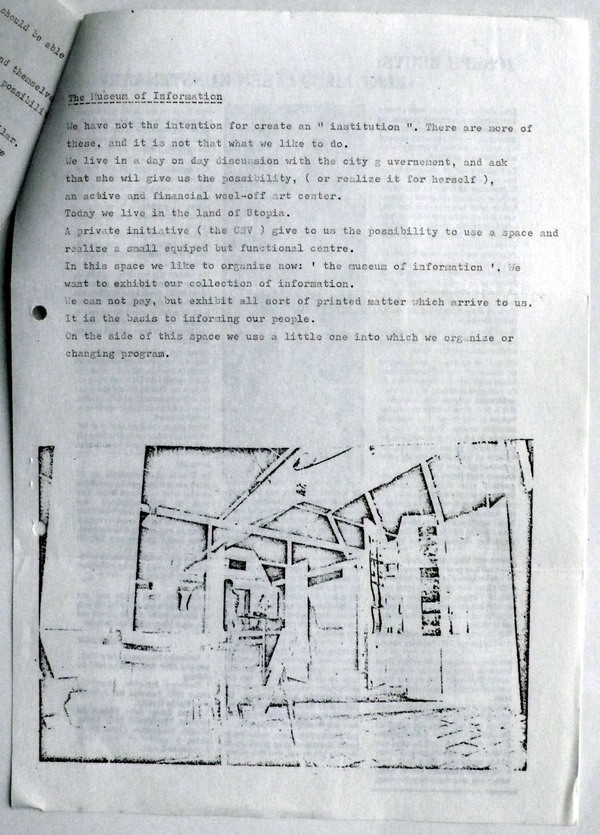 should be able
nd themselve
possibili
lar.
The Museum of Information
We have not the intention for create an " institution ". There are more of
these, and it is not that what we like to do.
We live in a day on day discussion with the city g uvernement, and ask
that she wil give us the possibility, ( or realize it for herself ),
an active and financial weel-off art center.
Today we live in the land of Utopia.
A private initiative ( the CSV ) give to us the possibility to use a space and
realize a small equiped but functional centre.
In this space we like to organize now: ' the museum of information '. We
want to exhibit our collection of information.
We can not pay, but exhibit all sort of printed matter which arrive to us.
It is the basis to informing our people.
On the side of this space we use a little one into which we organize or
changing program.